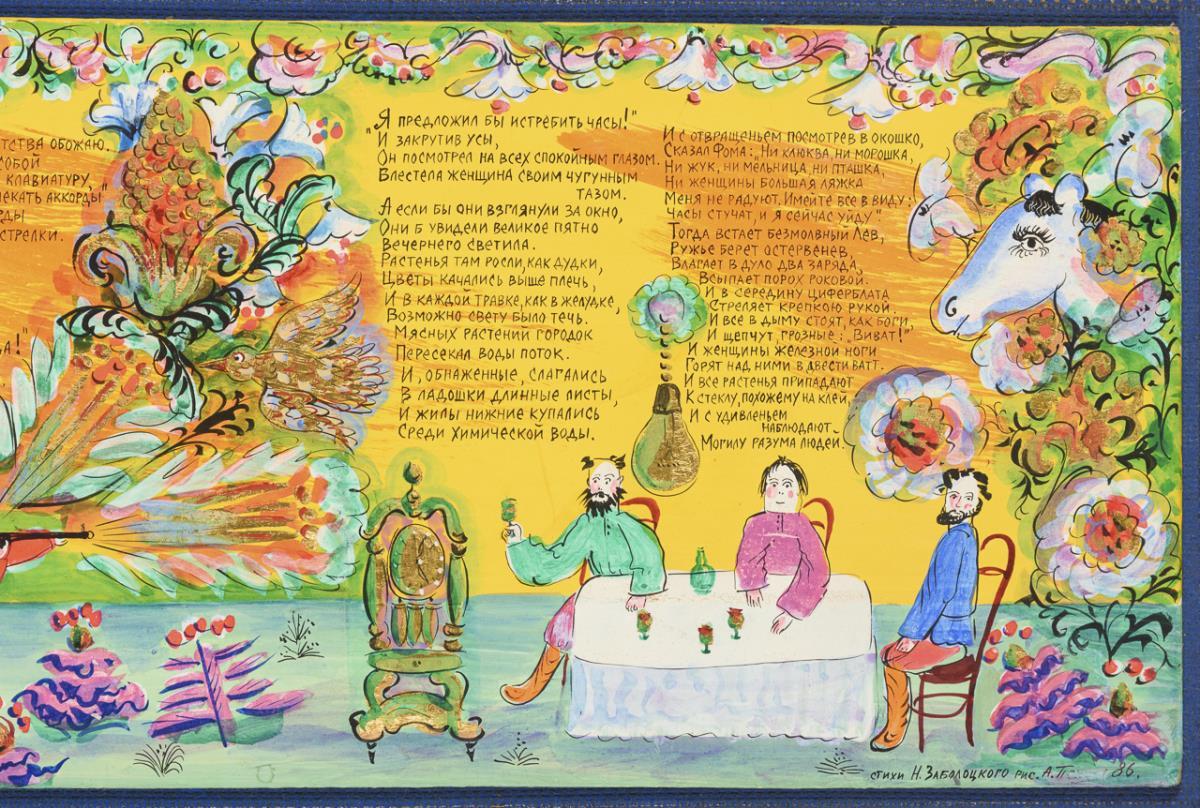 тства обожаю.
собой
клавиатуру,
лекать аккорды
рды
стрелки.
ва!
„Я предложил бы истребить часы!"
И закрутив усы,
Он посмотрел на всех спокойным глазом.
Блестела женщина своим чугунным
тазом.
А если бы они взглянули за окно,
Они б увидели великое пятно
Вечернего светила.
Растенья там росли, как дудки,
Цветы качались выше плечь,
И в каждой травке, как в желудке,
Возможно свету было течь.
Мясных растений городок
Пересекал воды поток.
И, обнаженные, слагались
В ладошки длинные листы,
И жилы нижние купались
Среди Химической воды.
И с отвращеньем посмотрев в окошко,
Сказал Фома: „Ни клюква, ни морошка,
Ни жук, ни мельница, ни пташка,
Ни женщины большая ляжка
Меня не радуют. Имейте все в виду:
Часы стучат, и я сейчас уйду."
Тогда встает безмолвный Лев,
Ружье берет остервенев,
Влагает в дуло два заряда,
Всыпает порох роковой.
И в середину циферблата
Стреляет крепкою рукой.
И все в дыму стоят, как боги,
И щепчут, грозные: „Виват!"
И женщины железной ноги
Горят над ними в двести ватт.
И все растенья припадают
К стеклу, похожему на клей,
И с удивленьем
наблюдают
Могилу разума людей.
стихи Н. Заболоцкого рис. А. 86.